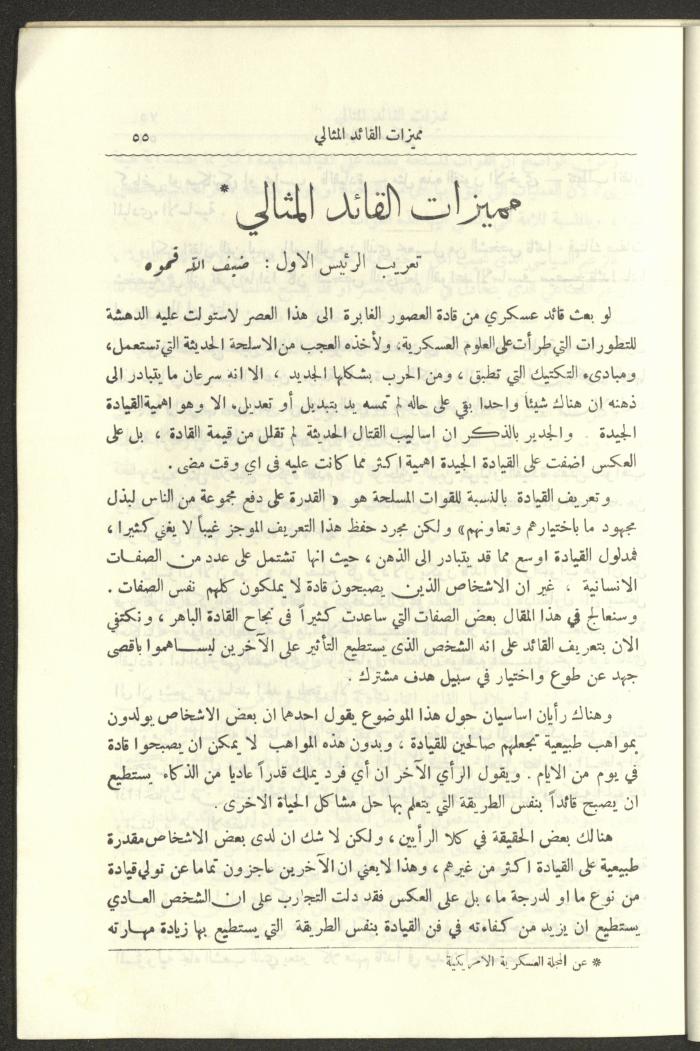 مميزات القائد المثالي
٥٥
مميزات القائد المثالي *
تعريب الرئيس الاول : ضيف الله قموه
لو بعث قائد عسكري من قادة العصور الغابرة الى هذا العصر لاستولت عليه الدهشة
للتطورات التي طرأت على العلوم العسكرية، ولأخذه العجب من الاسلحة الحديثة التي تستعمل،
ومبادىء التكتيك التي تطبق ، ومن الحرب بشكلها الجديد ، الا انه سرعان ما يتبادر الى
ذهنه ان هناك شيئاً واحدا بقي على حاله لم تمسه يد بتبديل أو تعديل، الا وهو اهمية القيادة
الجيدة . والجدير بالذكر ان اساليب القتال الحديثة لم تقلل من قيمة القادة ، بل على
العكس اضفت على القيادة الجيدة اهمية اكثر مما كانت عليه فى اي وقت مضى .
وتعريف القيادة بالنسبة للقوات المسلحة هو « القدرة على دفع مجموعة من الناس لبذل
مجهود ما باختيارهم وتعاونهم» ولكن مجرد حفظ هذا التعريف الموجز غيباً لا يغني كثيرا ،
فمدلول القيادة اوسع مما قد يتبادر الى الذهن ، حيث انها تشتمل على عدد من الصفات
الانسانية ، غير ان الاشخاص الذين يصبحون قادة لا يملكون كلهم نفس الصفات .
وسنعالج في هذا المقال بعض الصفات التي ساعدت كثيراً فى نجاح القادة الباهر ، ونكتفي
الان بتعريف القائد على انه الشخص الذى يستطيع التأثير على الآخرين ليساهموا باقصى
جهد عن طوع واختيار في سبيل هدف مشترك .
وهناك رأيان اساسيان حول هذا الموضوع يقول احدهما ان بعض الاشخاص يولدون
بمواهب طبيعية تجعلهم صالحين للقيادة ، وبدون هذه المواهب لا يمكن ان يصبحوا قادة
في يوم من الايام . ويقول الرأي الآخر ان أي فرد يملك قدراً عاديا من الذكاء يستطيع
ان يصبح قائداً بنفس الطريقة التي يتعلم بها حل مشاكل الحياة الاخرى .
هنالك بعض الحقيقة في كلا الرأيين ، ولكن لا شك ان لدى بعض الاشخاص مقدرة
طبيعية على القيادة اكثر من غيرهم ، وهذا لا يعني ان الآخرين عاجزون تماما عن تولي قيادة
من نوع ما او لدرجة ما ، بل على العكس فقد دلت التجارب على ان الشخص العادي
يستطيع ان يزيد من كفاءته في فن القيادة بنفس الطريقة التي يستطيع بها زيادة مهارته
* عن المجلة العسكرية الامريكية